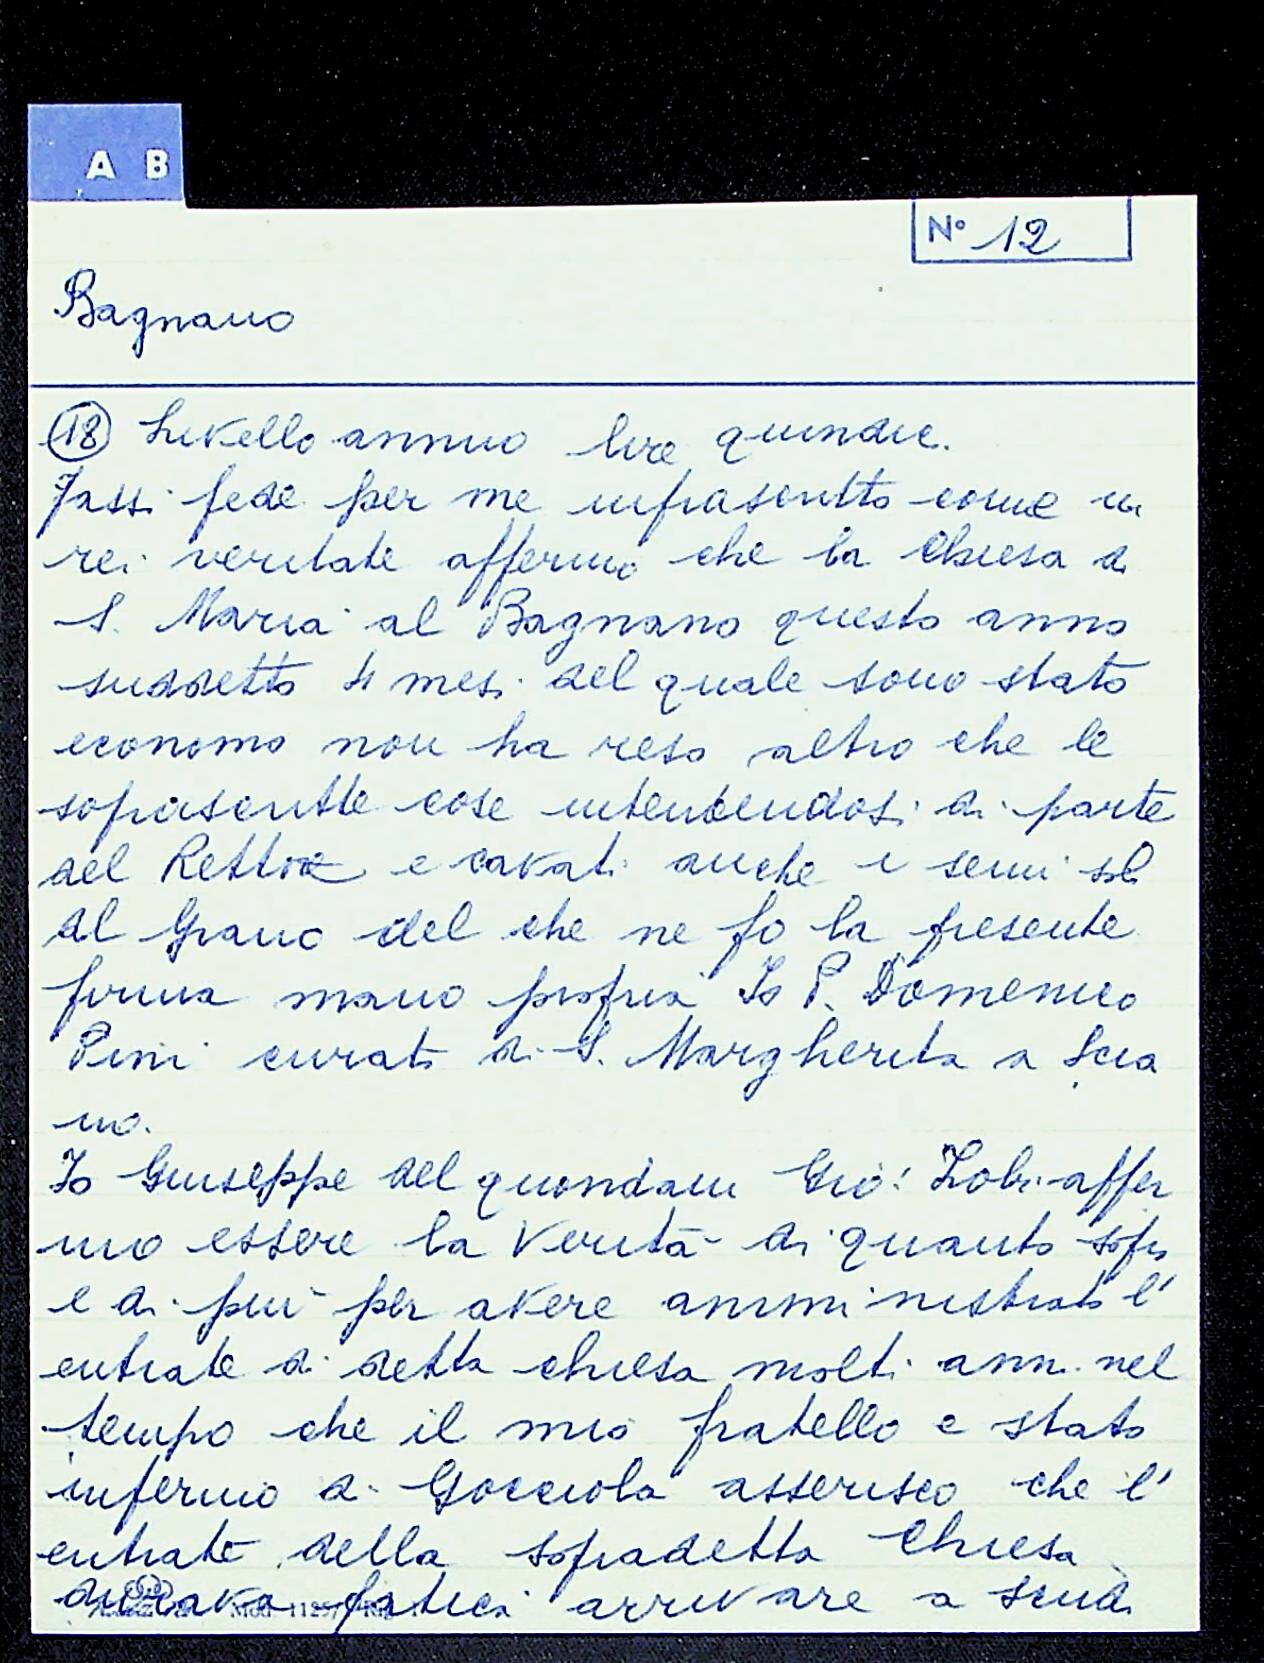 A B
N° 12
Bagnano
(18) Livello annuo lire quindic.
Fassi fede per me infrascritto come in
rei veritate affermo che la Chiesa di
S. Maria al Bagnano questo anno
suddetto 4 mesi del quale sono stato
economo non ha reso altro che le
soprascritte cose intendendosi di parte
del Rettore e cavati anche i semi sol
al Grano del che ne fo la presente
firma mano propria Io P. Domenico
Pini curato di S. Margherita a Scia
no.
Io Giuseppe del quondam Gio: affer
mo essere la verità di quanto sopra
e di più per avere amministrato l'
entrate di detta chiesa molti anni nel
tempo che il mio fratello è stato
infermo di Gocciola asserisco che l'
entrate della sopradetta Chiesa
durava fatica arrivare a scudi